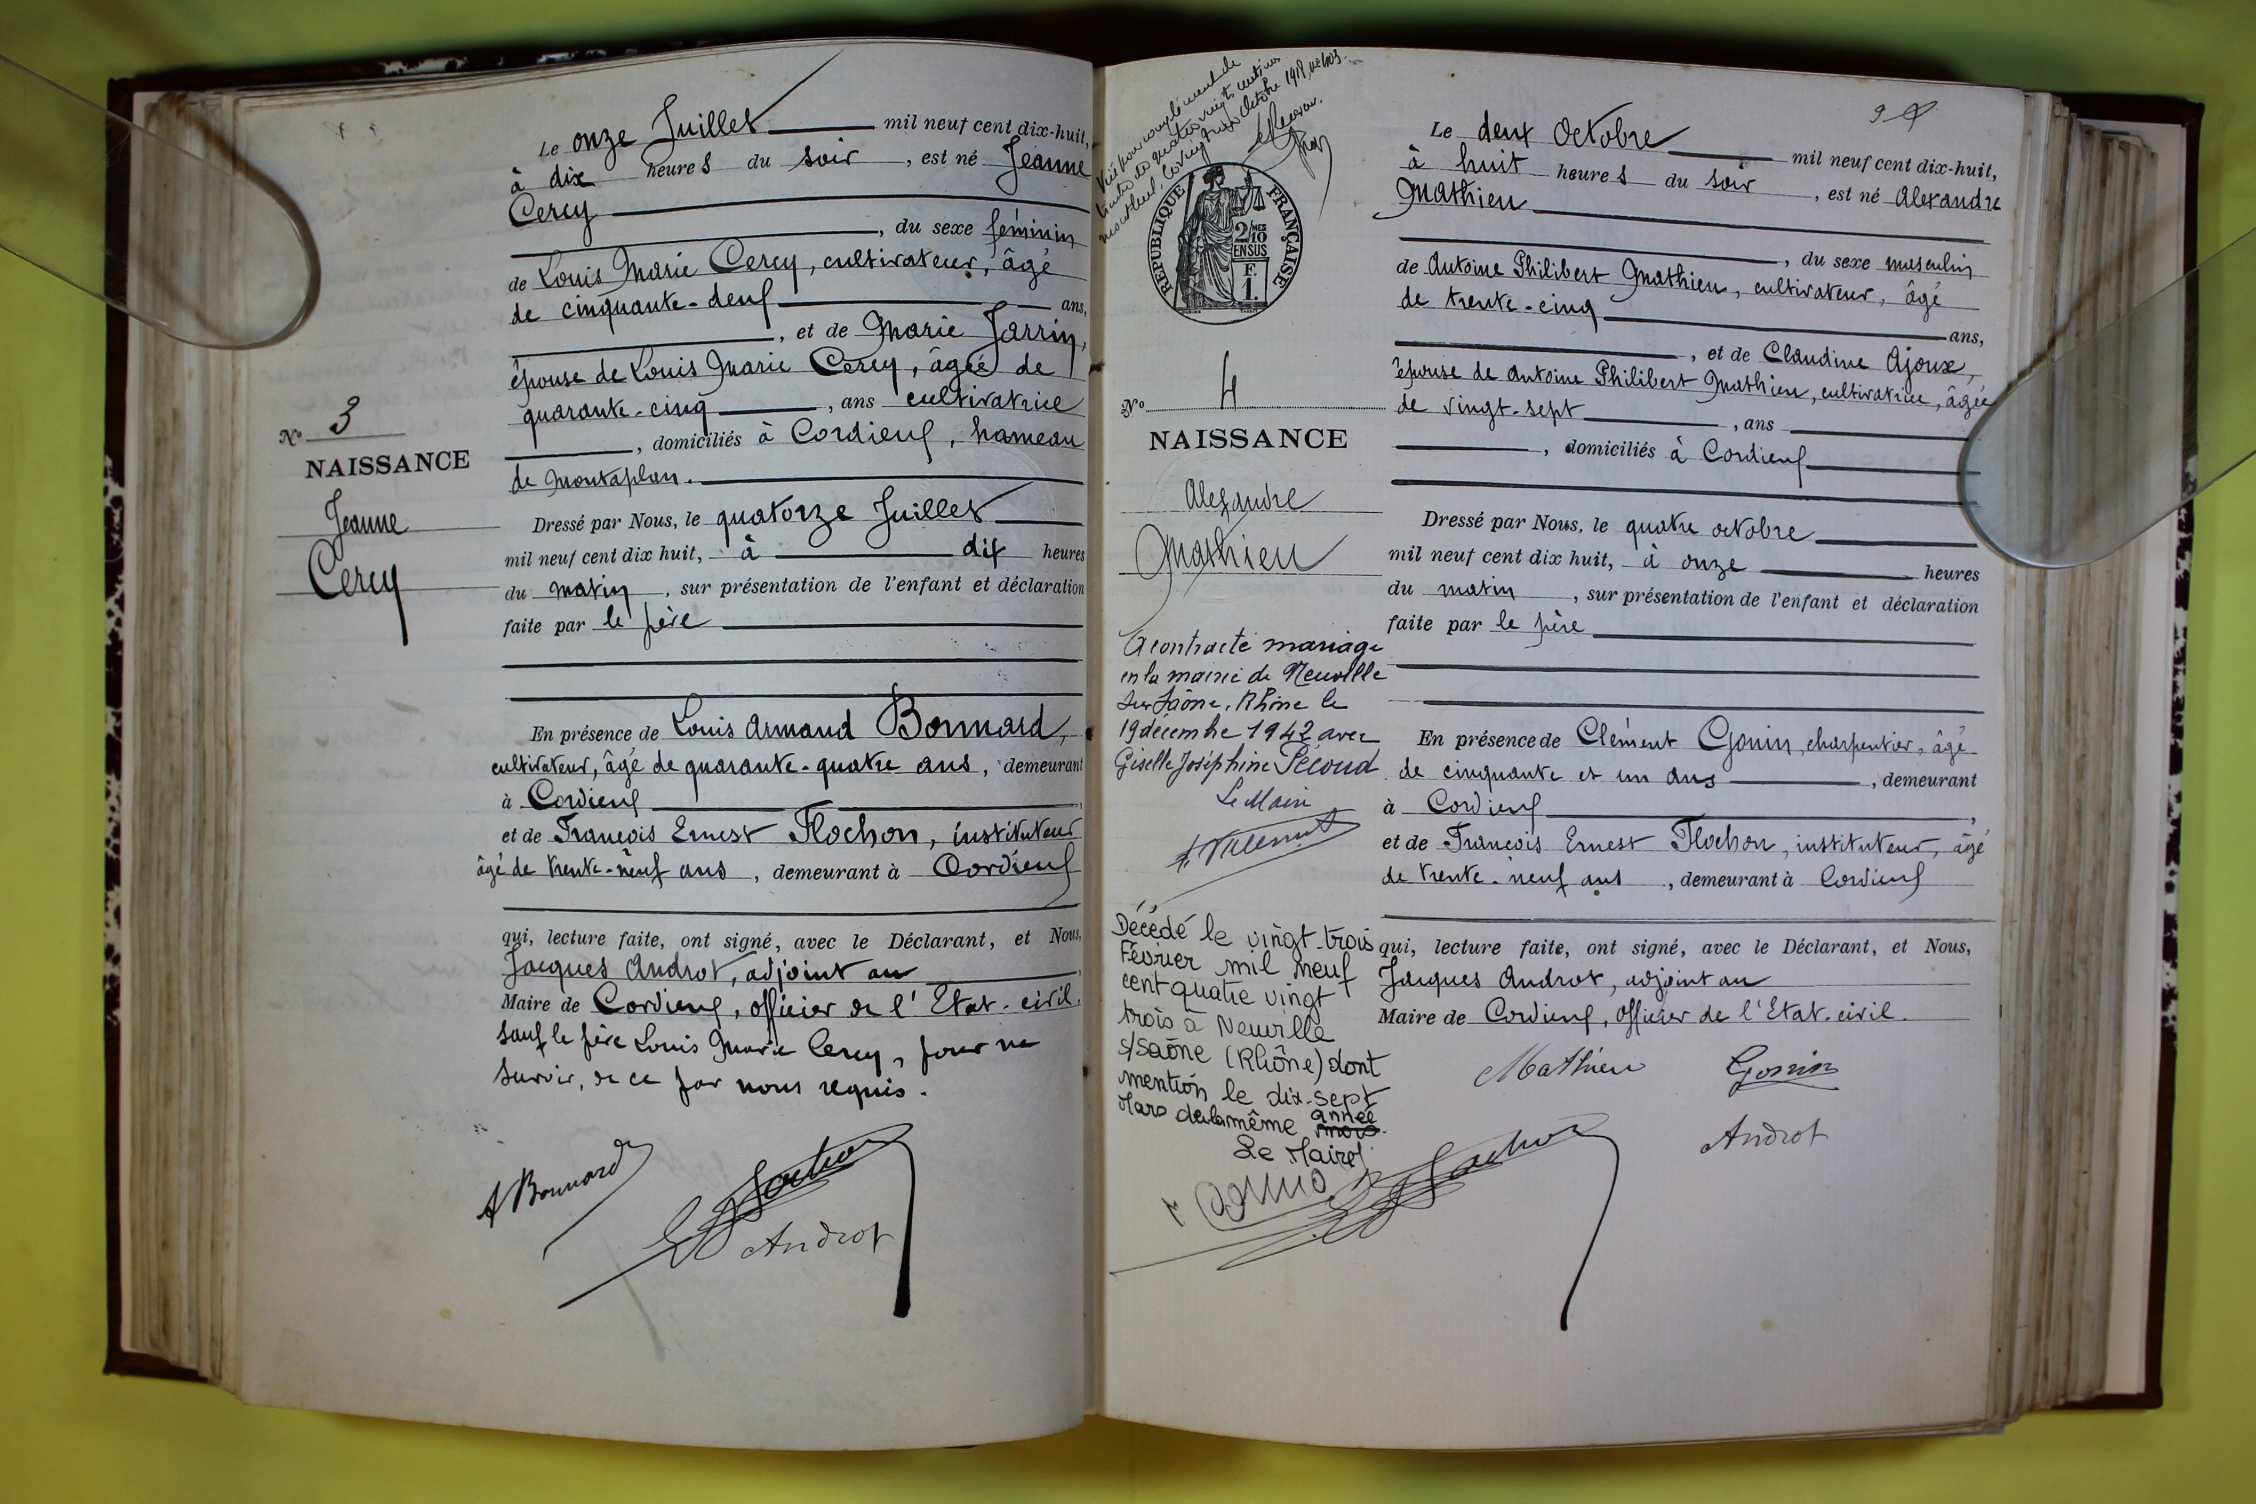 Le onze Juillet mil neuf cent dix-huit,
à dix heures du soir, est né Jeanne
Cercy
, du sexe féminin
de Louis Marie Cercy, cultivateur, âgé
de cinquante-deux ans,
, et de Marie Jarrin,
épouse de Louis Marie Cercy, âgée de
quarante-cinq, ans cultivatrice
, domiciliés à Cordieux, hameau
de Montaplan.
No 3
NAISSANCE
Jeanne
Cercy
Dressé par Nous, le quatorze Juillet
mil neuf cent dix huit, à dix heures
du matin, sur présentation de l'enfant et déclaration
faite par le père
En présence de Louis Armand Bonnard,
cultivateur, âgé de quarante-quatre ans, demeurant
à Cordieux,
et de François Ernest Flochon, instituteur
âgé de trente-neuf ans, demeurant à Cordieux
qui, lecture faite, ont signé, avec le Déclarant, et Nous,
Jacques Androt, adjoint au
Maire de Cordieux, officier de l'Etat-civil.
sauf le père Louis Marie Cercy, pour ne
savoir, de ce par nous requis.
A Bonnard
E Flochon
Androt
Visé pour complément de
timbre à quatre vingts centimes
Octobre 1918
Le Receveur.
REPUBLIQUE FRANÇAISE
2/10 MES
EN SUS
F.
1.
No 4
NAISSANCE
Alexandre
Mathieu
A contracté mariage
en la mairie de Neuville
sur Saône, Rhône le
19 décembre 1942 avec
Giselle Joséphine Sécoud
Le Maire
Décédé le vingt-trois
Février mil neuf
cent quatre vingt
trois à Neuville
s/Saône (Rhône) dont
mention le dix-sept
Mars de la même année
mois
Le Maire
9
Le deux Octobre mil neuf cent dix-huit,
à huit heures du soir, est né Alexandre
Mathieu
, du sexe masculin
de Antoine Philibert Mathieu, cultivateur, âgé
de trente-cinq ans,
, et de Claudine Ajoux,
épouse de Antoine Philibert Mathieu, cultivatrice, âgée
de vingt-sept, ans
, domiciliés à Cordieux
Dressé par Nous, le quatre octobre
mil neuf cent dix huit, à onze heures
du matin, sur présentation de l'enfant et déclaration
faite par le père
En présence de Clément Gonin, charpentier, âgé
de cinquante et un ans, demeurant
à Cordieux,
et de François Ernest Flochon, instituteur, âgé
de trente-neuf ans, demeurant à Cordieux
qui, lecture faite, ont signé, avec le Déclarant, et Nous,
Jacques Androt, adjoint au
Maire de Cordieux, officier de l'Etat-civil.
Mathieu Gonin
Androt
E Flochon